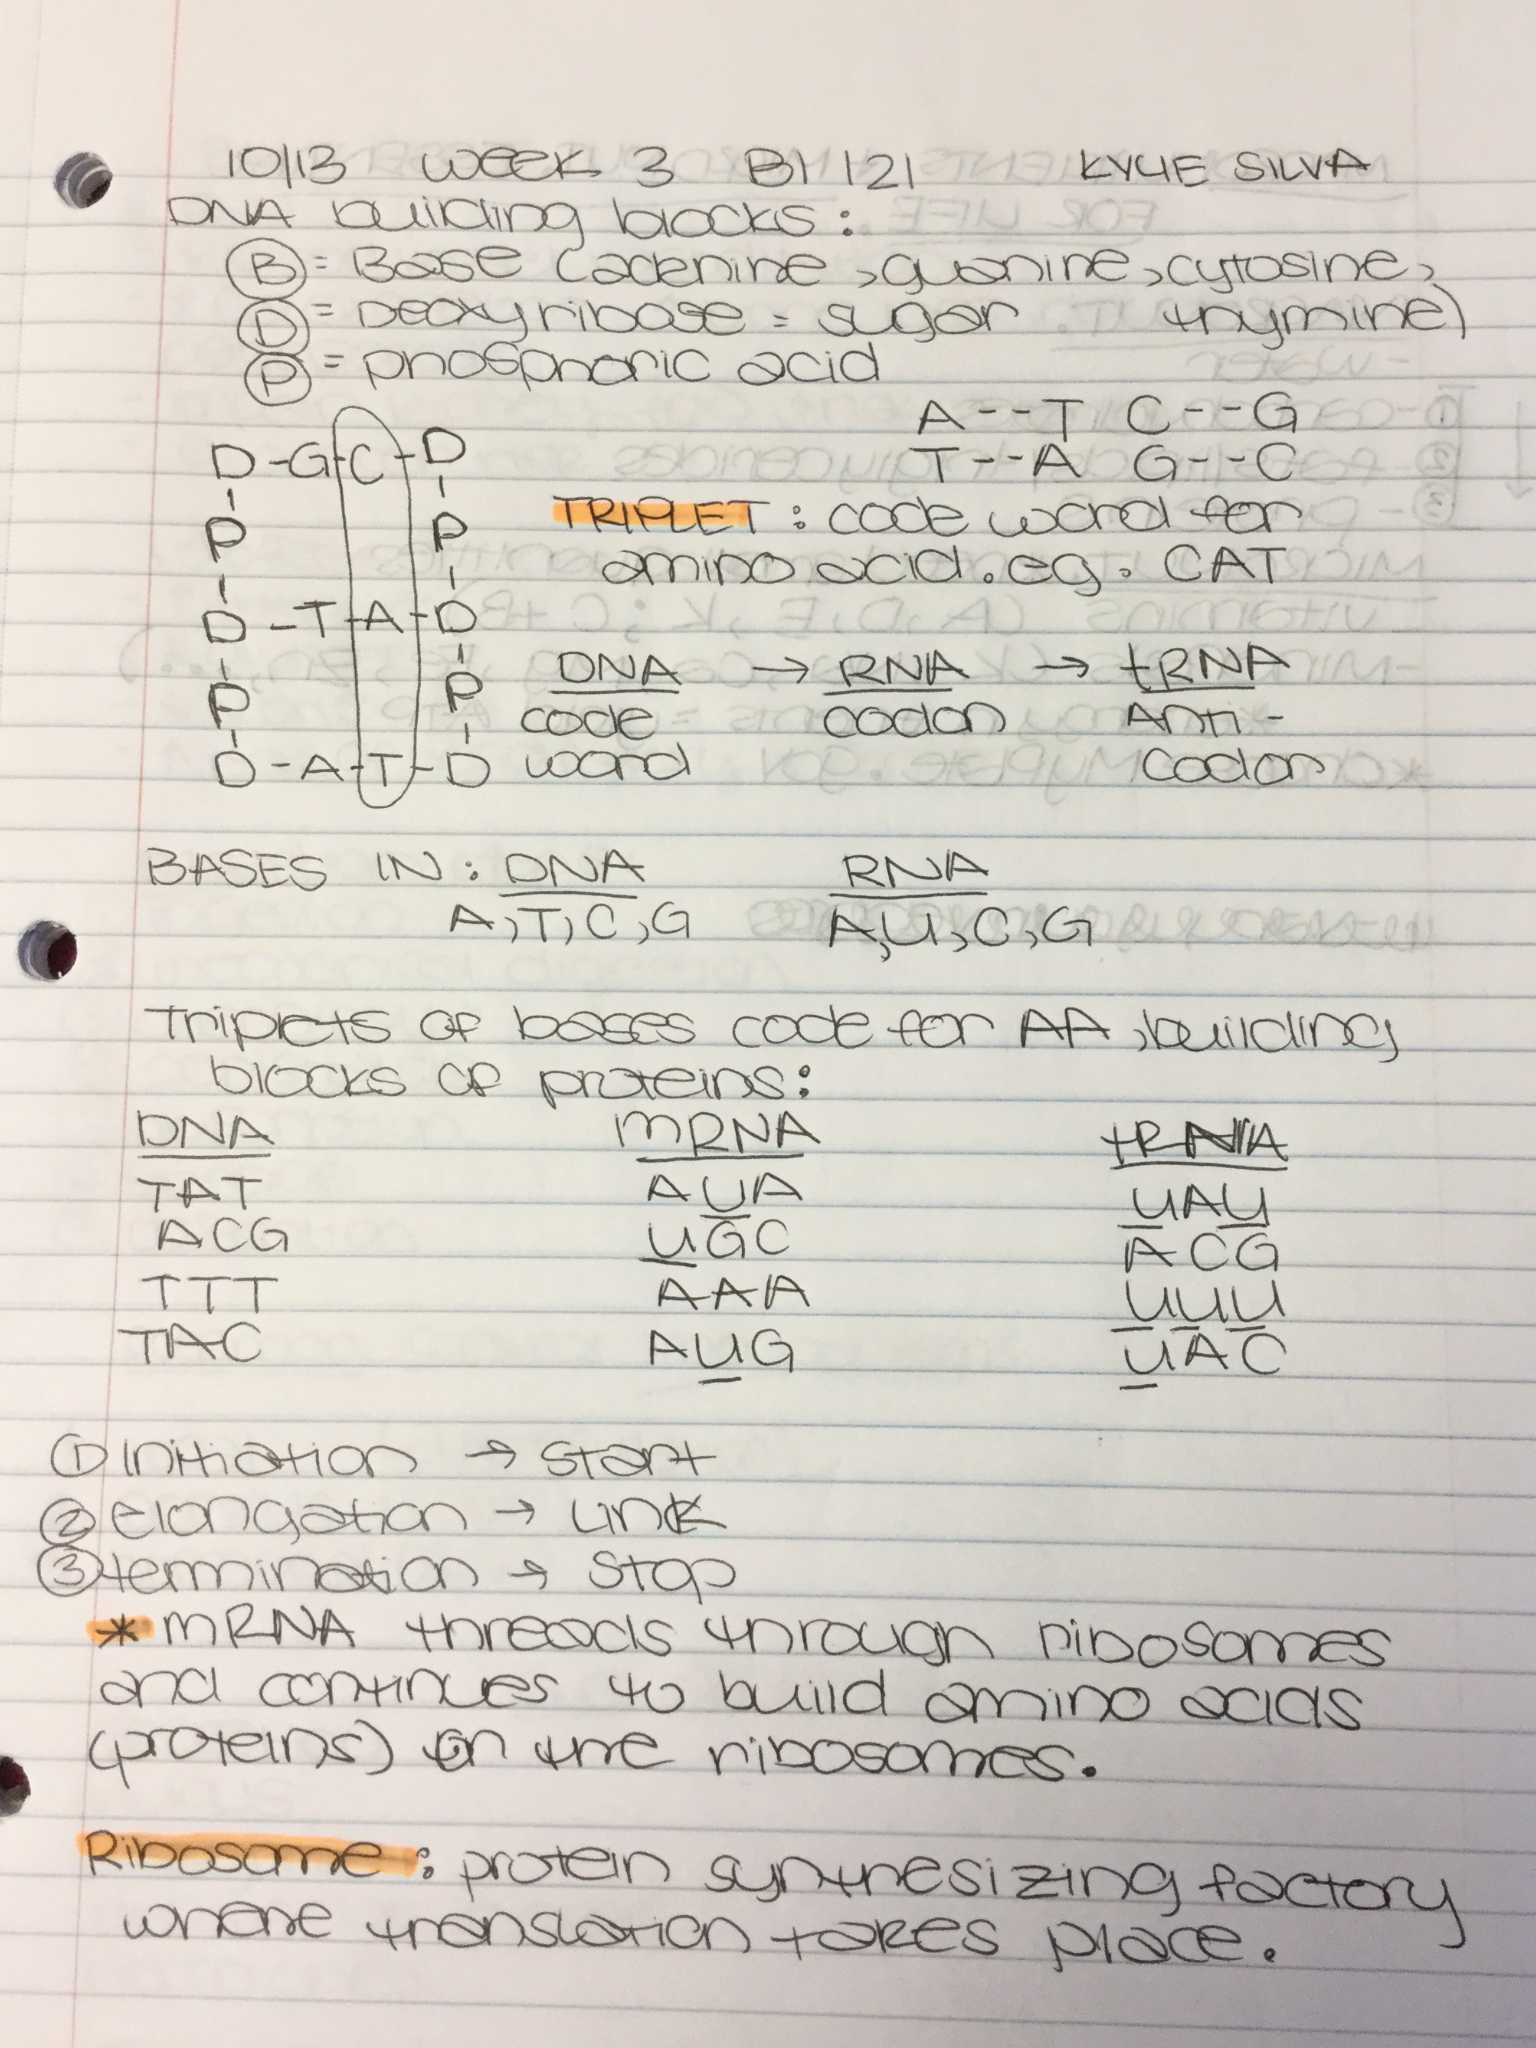 10/13 week 3 BI 121 KYLIE SILVA
DNA building blocks:
(B) = Base (adenine, guanine, cytosine,
(D) = Deoxyribase = sugar thymine)
(P) = phosphoric acid
A--T C--G
D-G-C-D T--A G--C
P P TRIPLET: code word for
amino acid. eg. CAT
D-T-A-D
P P DNA → RNA → tRNA
code codon Anti-
D-A-T-D word codon
BASES IN: DNA RNA
A,T,C,G A,U,C,G
Triplets of bases code for AA, building
blocks of proteins:
DNA mRNA tRNA
TAT AUA UAU
ACG UGC ACG
TTT AAA UUU
TAC AUG UAC
① initiation → start
② elongation → Link
③ termination → Stop
* mRNA threads through ribosomes
and continues to build amino acids
(proteins) on the ribosomes.
Ribosome: protein synthesizing factory
where translation takes place.